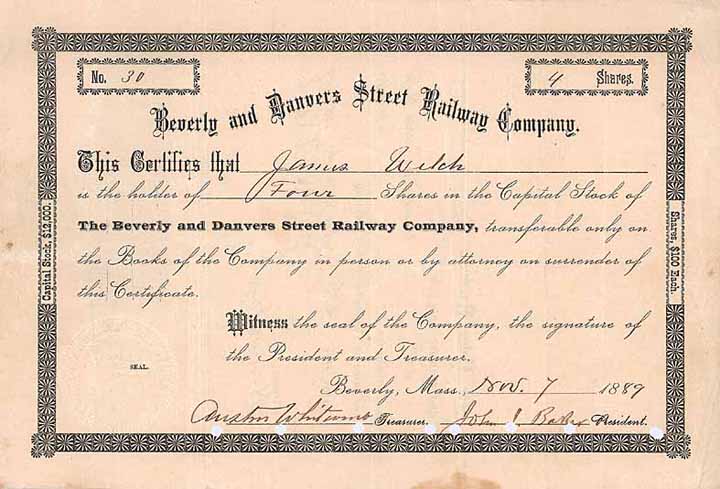 No. 30
4 Shares.
Beverly and Danvers Street Railway Company.
This Certifies that James Welch
is the holder of Four Shares in the Capital Stock of
The Beverly and Danvers Street Railway Company, transferable only on
the Books of the Company in person or by attorney on surrender of
this Certificate.
Capital Stock, $12,000.
Shares, $100 Each.
Witness the seal of the Company, the signature of
the President and Treasurer.
SEAL.
Beverly, Mass., Nov. 7 1889
Austin Whitcomb Treasurer. John I. Baker President.